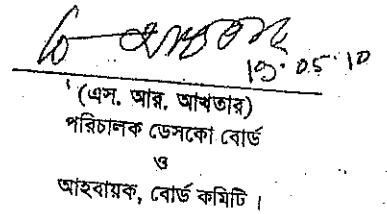 ১৩.০৫.১০
(এস. আর. আখতার)
পরিচালক ডেসকো বোর্ড
ও
আহবায়ক, বোর্ড কমিটি ।